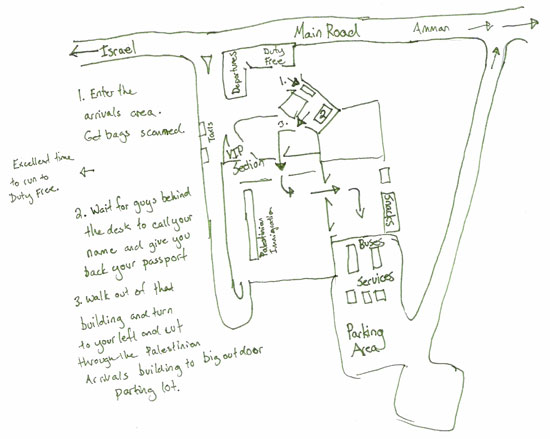 Main Road
Amman
Israel
Departures
Duty
Free
1.
2
3.
Taxis
VIP
Section
Palestinian
Immigration
Snacks
Buses
Services
Parking
Area
1. Enter the
arrivals area.
Get bags scanned
Excellent time
to run to
Duty Free.
2. Wait for guys behind
the desk to call your
name and give you
back your passport
3. Walk out of that
building and turn
to your left and cut
through the Palestinian
Arrivals building to big outdoor
parking lot.